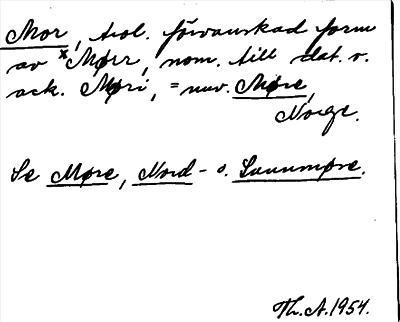 Mor, trol. förvanskad form
av ˣMørr, nom. till dat. o.
ack. Møri, = nuv. Møre,
Norge.
Se Møre, Nord- o. Sunnmøre.
Th. A. 1954.